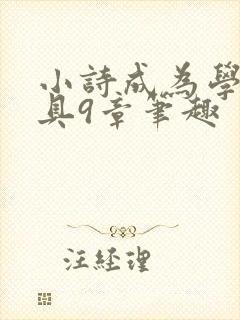 小詩成為學
具9章筆趣
汪經理